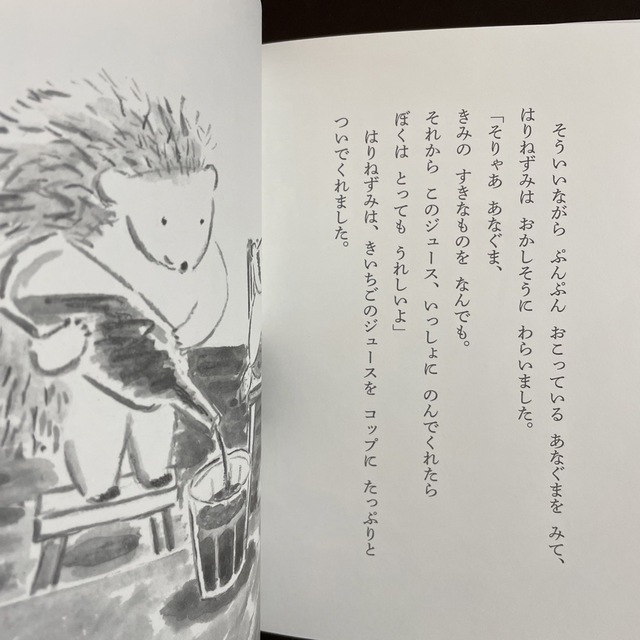 そういいながら ぷんぷん おこっている あなぐまを みて、
はりねずみは おかしそうに わらいました。
「そりゃあ あなぐま、
きみの すきなものを なんでも。
それから このジュース、いっしょに のんでくれたら
ぼくは とっても うれしいよ」
はりねずみは、きいちごのジュースを コップに たっぷりと
ついでくれました。